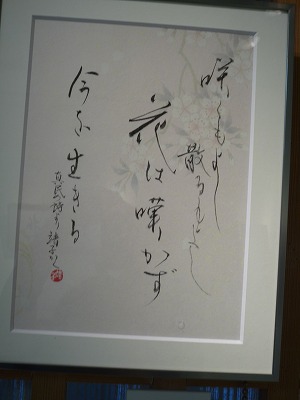 咲くもよし
散るもよし
花は嘆かず
今を生きる
真民詩より